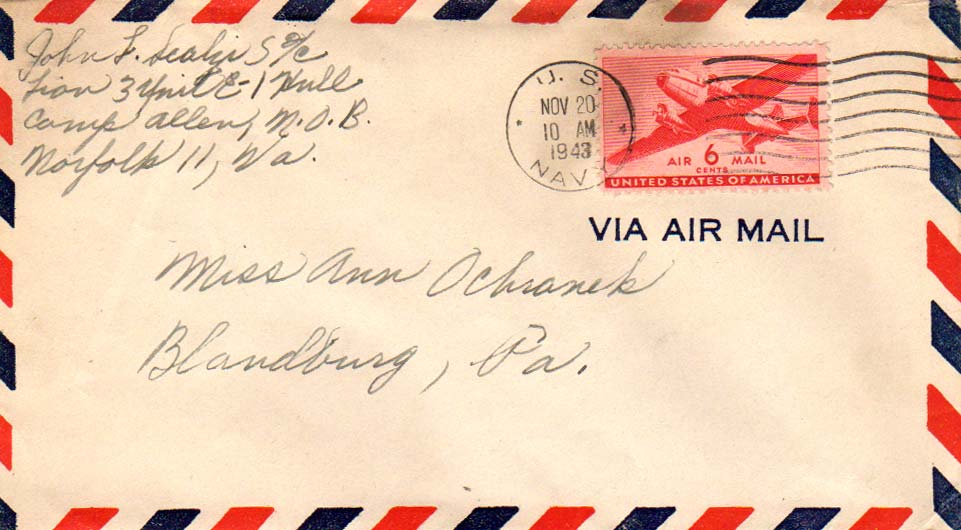 John F. Sealy S 2/c
Lion 3 Unit E-1 Hull
Camp Allen, N.O.B.
Norfolk 11, Va.
U. S.
NOV 20
10 AM
1943
NAVY
AIR 6 MAIL
CENTS
UNITED STATES OF AMERICA
VIA AIR MAIL
Miss Ann Ochranek
Blandburg, Pa.